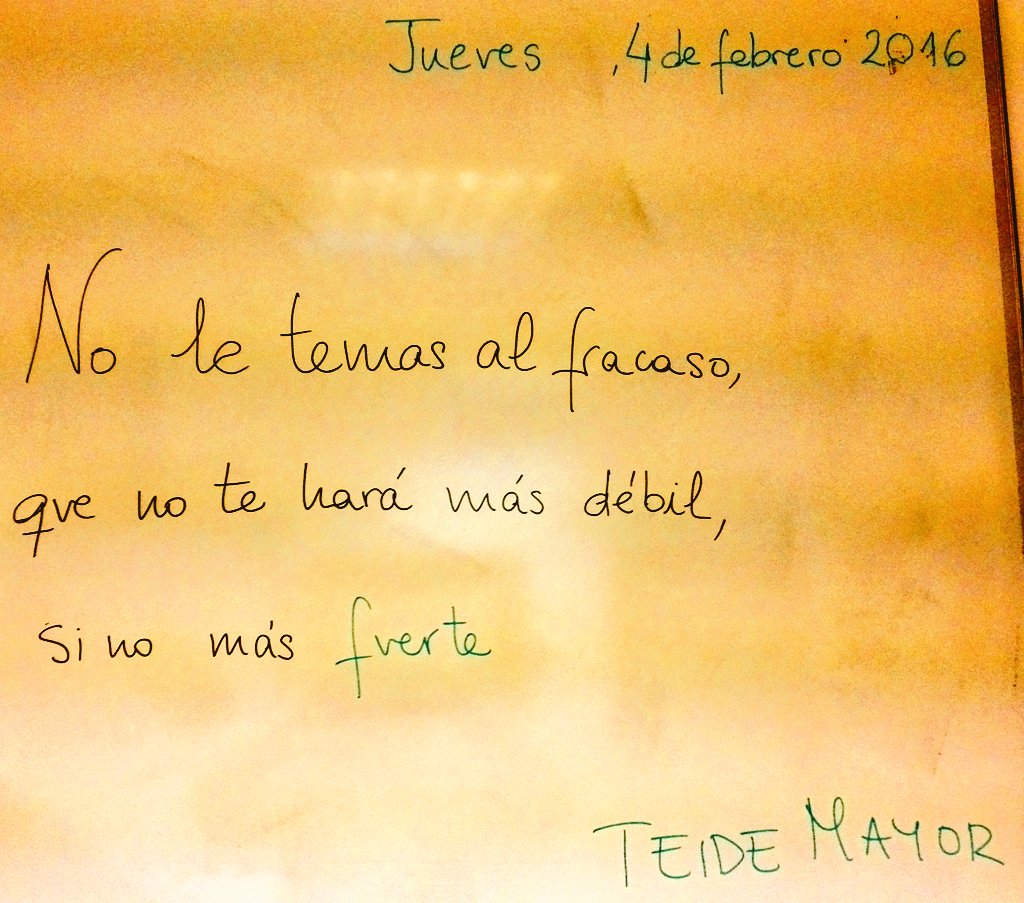 Jueves , 4 de febrero 2016
No le temas al fracaso,
que no te hará más débil,
si no más fuerte
TEIDE MAYOR